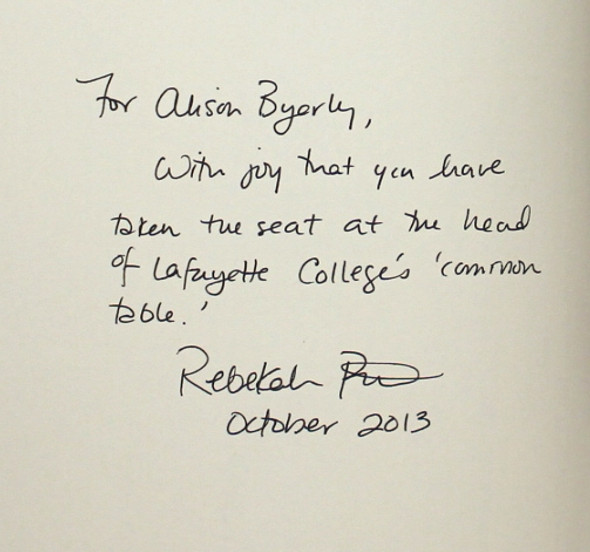 For Alison Byerly,
With joy that you have
taken the seat at the head
of Lafayette College's 'common
table.'
Rebekah
October 2013